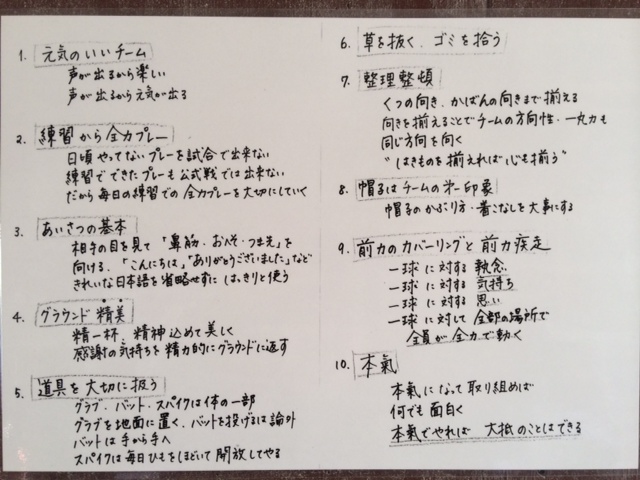 1. 元気のいいチーム
声が出るから楽しい
声が出るから元気が出る
2. 練習から全力プレー
日頃やってないプレーを試合で出来ない
練習でできたプレーも公式戦では出来ない
だから毎日の練習での全力プレーを大切にしていく
3. あいさつの基本
相手の目を見て「鼻筋・おへそ・つま先」を
向ける。「こんにちは」「ありがとうございました」など
きれいな日本語を省略せずにはっきりと使う
4. グラウンド精美
精一杯、精神込めて美しく
感謝の気持ちを精力的にグラウンドに返す
5. 道具を大切に扱う
グラブ、バット、スパイクは体の一部
グラブを地面に置く、バットを投げるは論外
バットは手から手へ
スパイクは毎日ひもをほどいて開放してやる
6. 草を抜く、ゴミを拾う
7. 整理整頓
くつの向き、かばんの向きまで揃える
向きを揃えることでチームの方向性・一丸力も
同じ方向を向く
"はきものを揃えれば心も揃う"
8. 帽子はチームの第一印象
帽子のかぶり方・着こなしを大事にする
9. 全力のカバーリングと全力疾走
一球に対する執念
一球に対する気持ち
一球に対する思い
一球に対して全部の場所で
全員が全力で動く
10. 本氣
本氣になって取り組めば
何でも面白く
本氣でやれば 大抵のことはできる